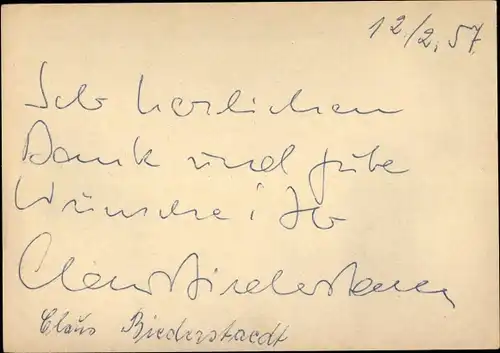 12/2.57
Seh herzlichen
Dank und gute
Wünsche! Ihr
Claus Biederstaedt
Claus Biederstaedt